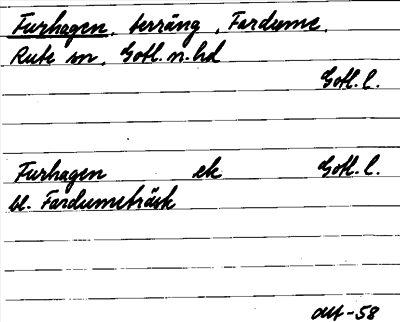 Furhagen, terräng, Fardume,
Rute sn, Gotl. n. hd
Gotl. l.
Furhagen ek Gotl. l.
bl. Fardumeträsk
-58